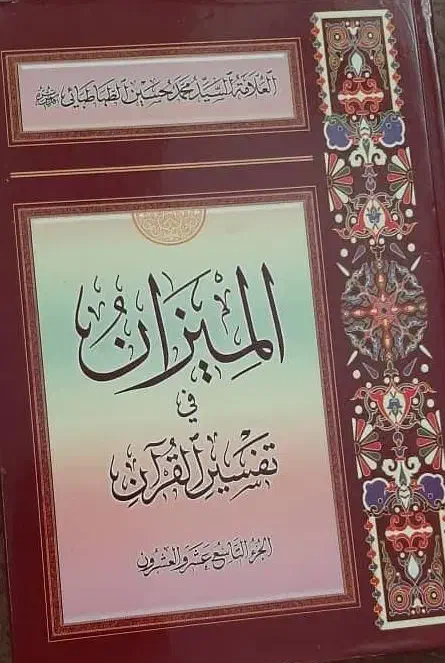 العلامة السيد محمد حسين الطباطبائي
الميزانُ
في
تفسير القرآن
الجزء التاسع عشر والعشرون